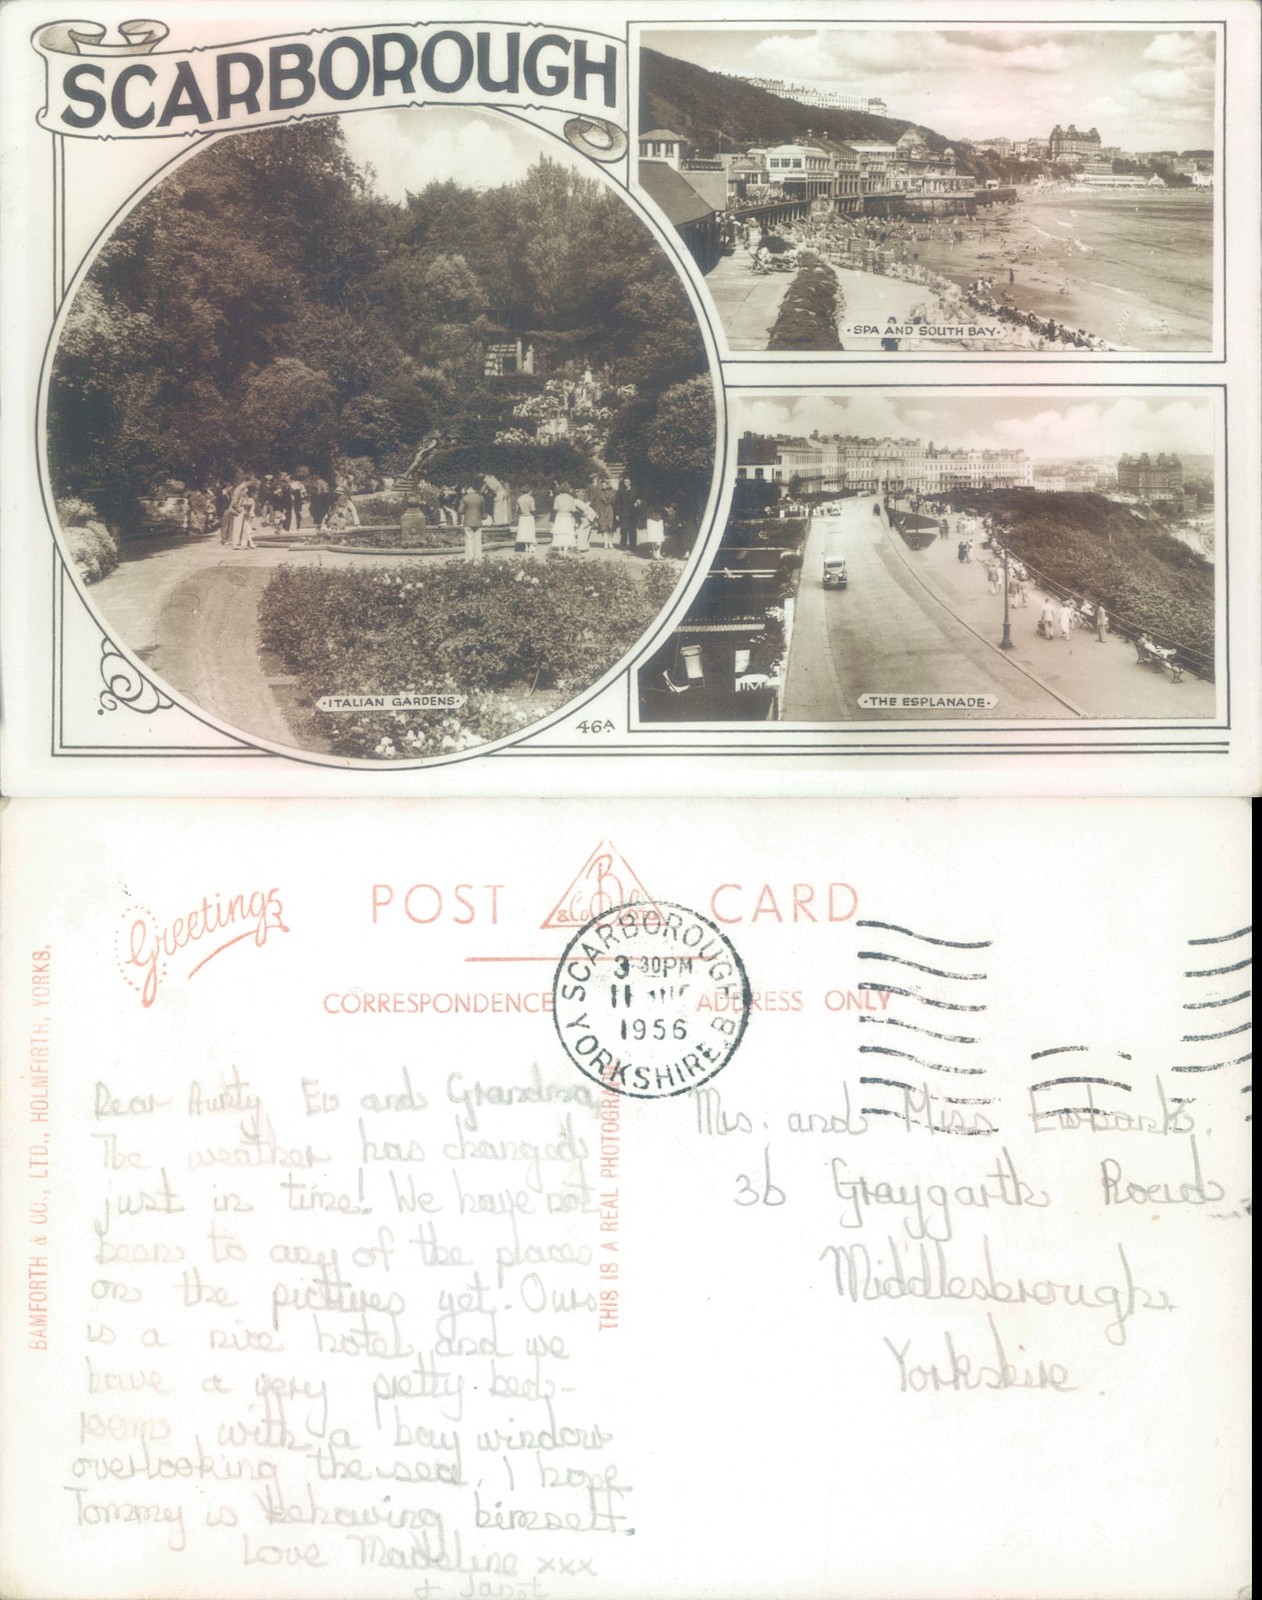 SCARBOROUGH
·SPA AND SOUTH BAY·
·ITALIAN GARDENS·
46A
·THE ESPLANADE·
Greetings
POST CARD
B
& Co Ltd
CORRESPONDENCE
ADDRESS ONLY
SCARBOROUGH
3-30PM
11
1956
YORKSHIRE. B
BAMFORTH & CO., LTD., HOLMFIRTH, YORKS.
THIS IS A REAL PHOTOGRA
Dear Aunty Ev and Grandma,
The weather has changed
just in time! We have not
been to any of the places
on the pictures yet. Ours
is a nice hotel and we
have a very pretty bed-
room with a bay window
overlooking the sea. I hope
Tommy is behaving himself.
Love Madeline xxx
& Janet
Mrs. and Miss Ewbank.
36 Graygarth Road
Middlesbrough,
Yorkshire.